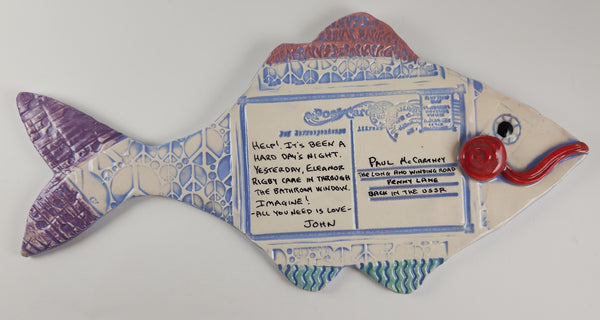 Post Card
HELP! IT'S BEEN A
HARD DAY'S NIGHT.
YESTERDAY, ELEANOR
RIGBY CAME IN THROUGH
THE BATHROOM WINDOW.
IMAGINE!
-ALL YOU NEED IS LOVE-
JOHN
PAUL MCCARTNEY
THE LONG AND WINDING ROAD
PENNY LANE
BACK IN THE USSR